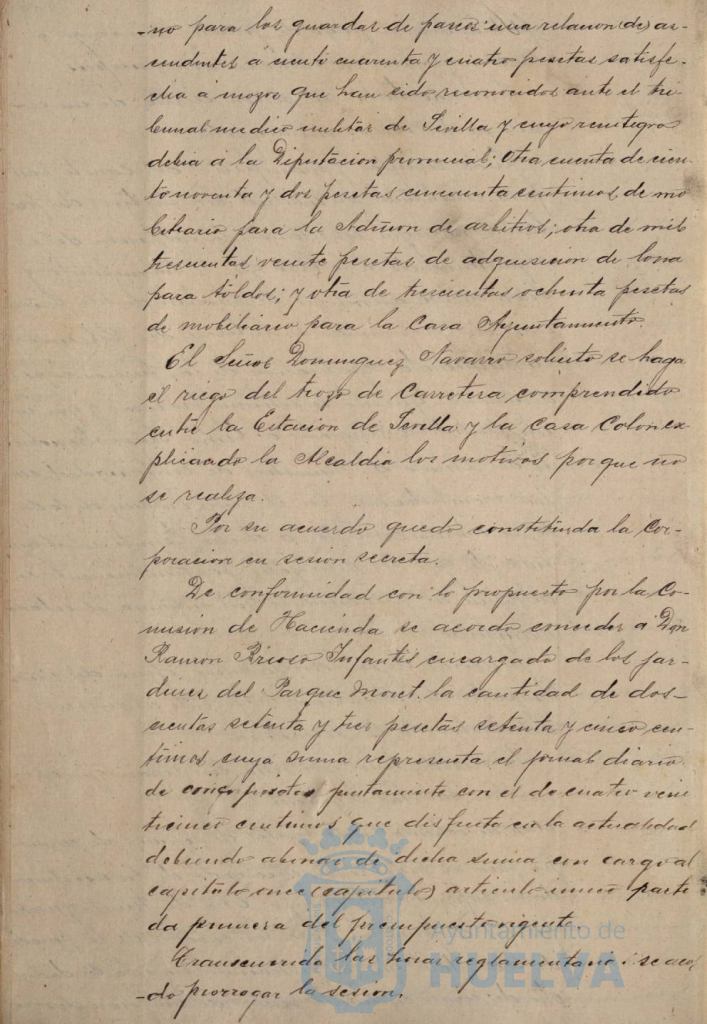 -no para los guardas de paseos; una relacion (de) as-
cendentes á ciento cuarenta y cuatro pesetas satisfe-
cha a mozos que han sido reconocidos ante el tri-
bunal medico militar de Sevilla y cuyo reintegro
debia á la Diputacion provincial; otra cuenta de cien-
to noventa y dos pesetas cincuenta centimos de mo
biliario para la Admon de arbitrios; otra de mil
trescientas veinte pesetas de adquisicion de lona
para tóldos; y otra de trescientas ochenta pesetas
de mobiliario para la Casa Ayuntamiento.
El Señor Dominguez Navarro solicito se haga
el riego del trozo de Carretera comprendido
entre la Estacion de Sevilla y la Casa Colon ex-
plicando la Alcaldia los motivos por que no
se realiza.
Por su acuerdo quedo constituida la Cor-
poracion en sesion secreta.
De conformidad con lo propuesto por la Co-
mision de Hacienda se acordo conceder a Don
Ramon Brioso Infantes encargado de los jar-
dines del Parque Moret. la cantidad de dos-
cientas setenta y tres pesetas setenta y cinco cen-
timos cuya suma representa el jornal diario
de cinco pesetas juntamente con el de cuatro vein
ticinco centimos que disfruta en la actualidad
debiendo abonar de dicha suma con cargo al
capitulo once (capitulo) articulo unico parti
da primera del presupuesto vigente.
Transcurrido las horas reglamentarias se acor
-do prorrogar la sesion.
Ayuntamiento de
HUELVA